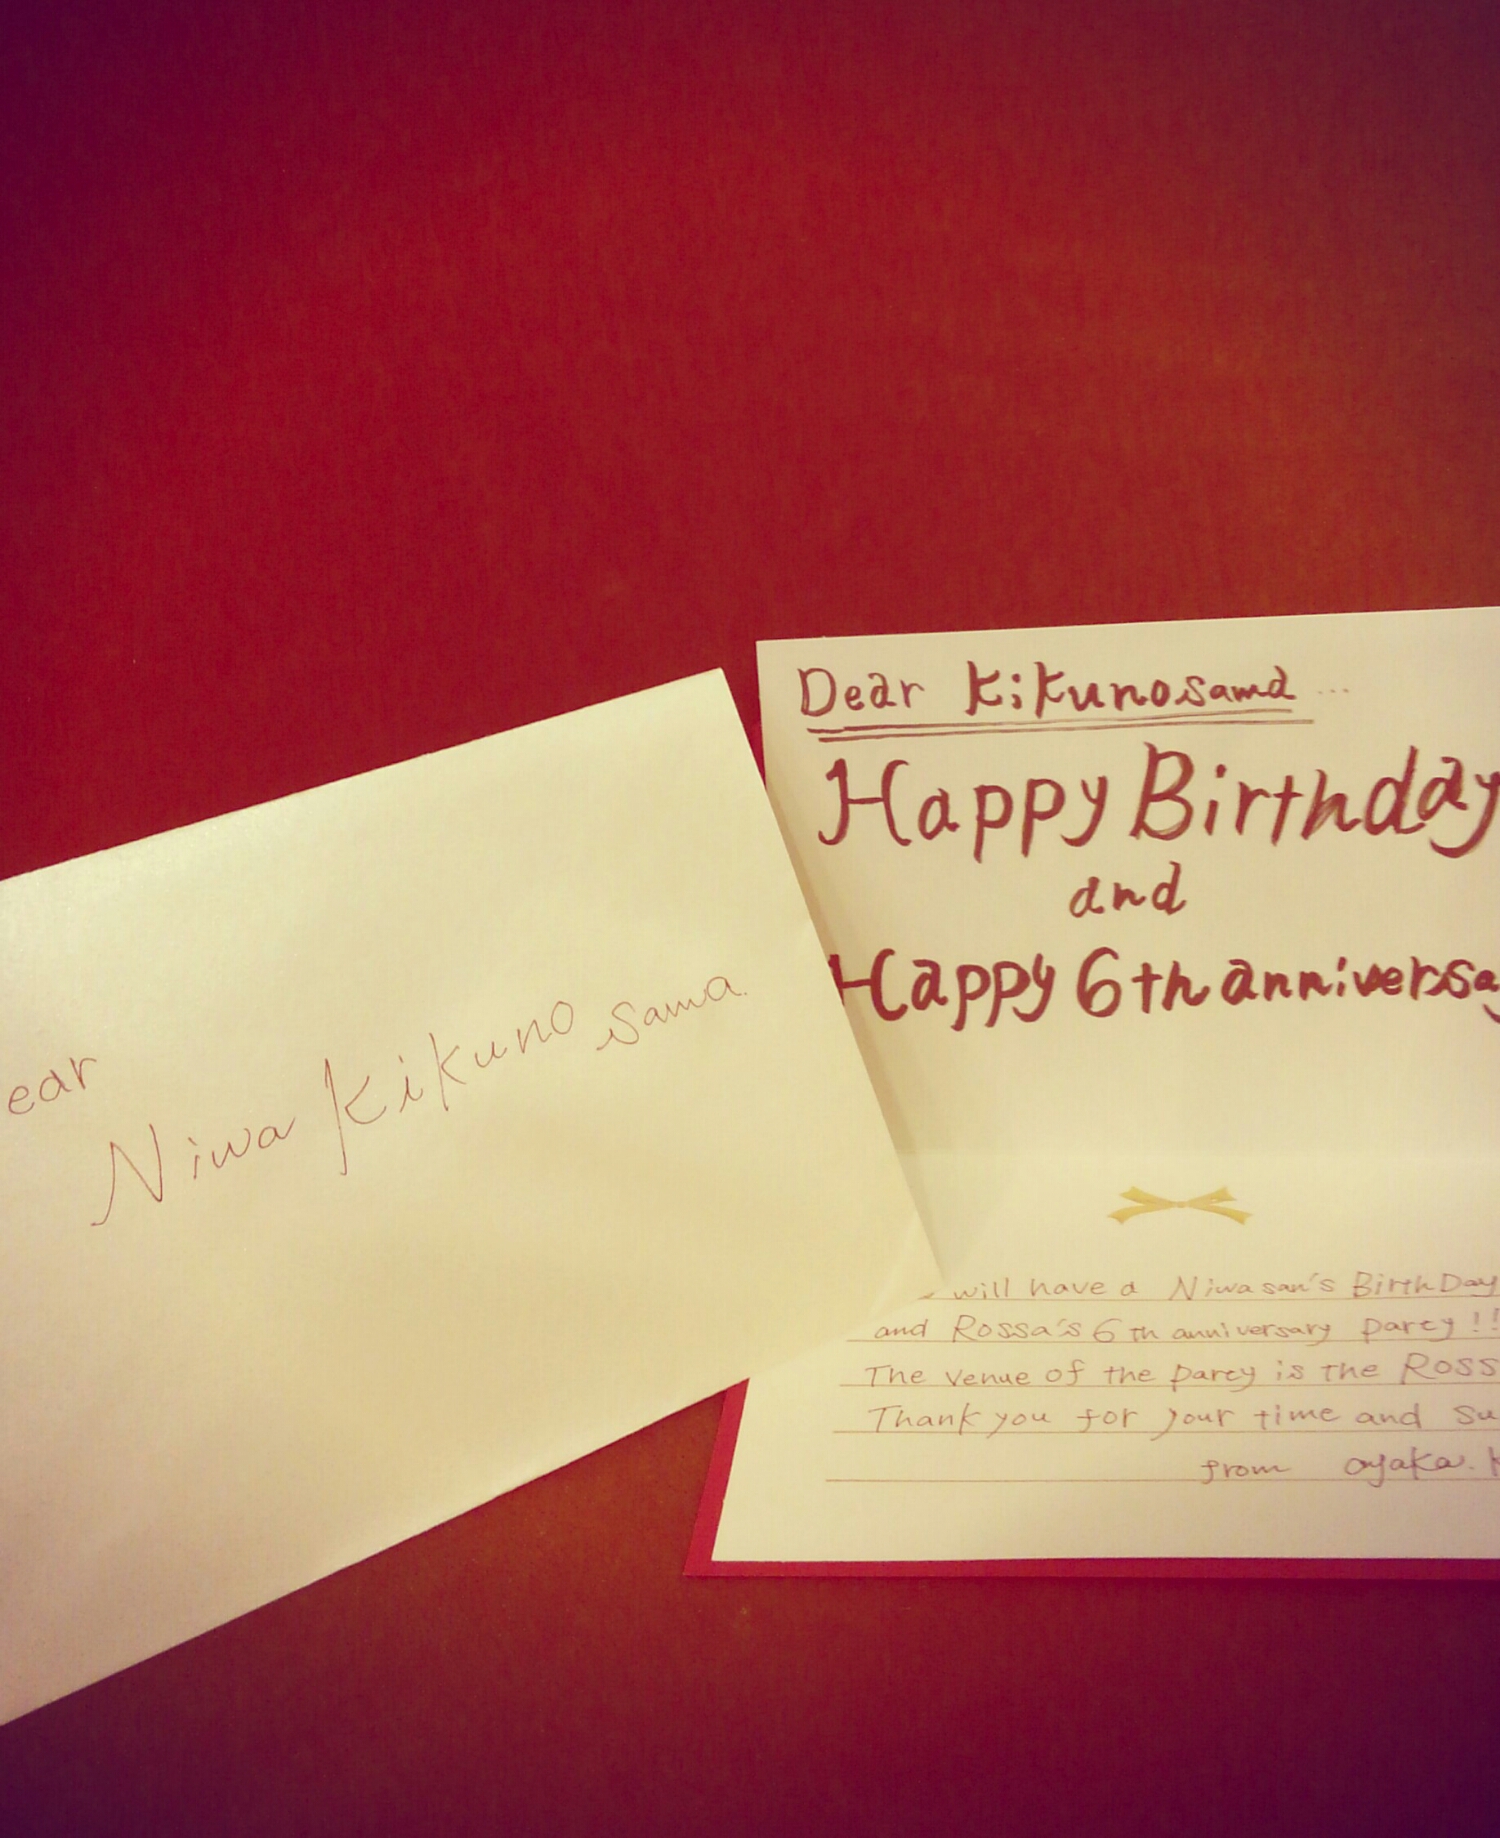 ear
Niwa Kikuno sama
Dear Kikuno sama ...
Happy Birthday
and
Happy 6th anniversa
will have a Niwa san's BirthDay
and Rossa's 6th anniversary party!!
The venue of the party is the ROSS
Thank you for your time and su
from ayaka.